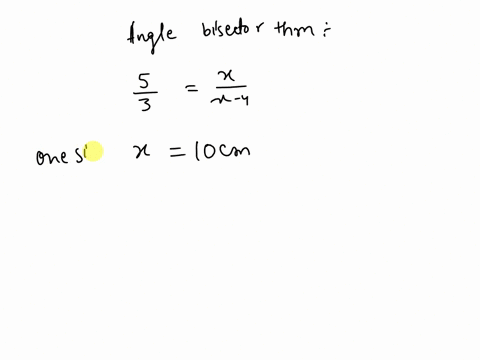 Angle bisector thm :-
5/3 = x/x-4
one si x = 10cm